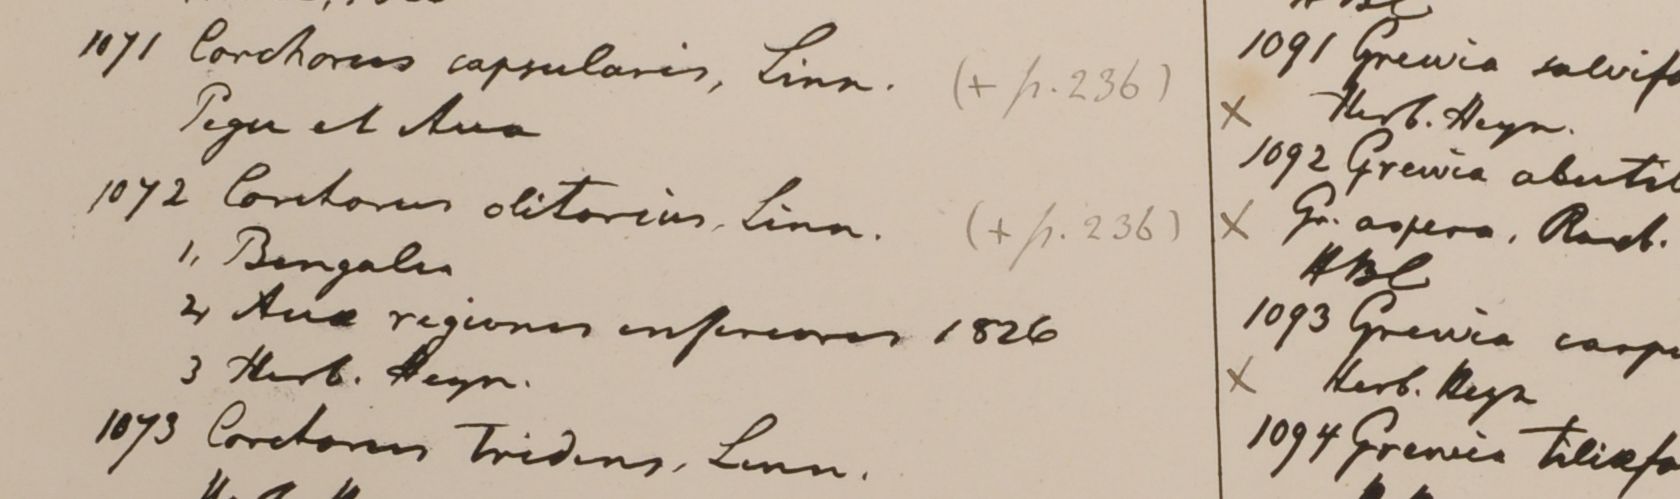 1071 Corchorus capsularis, Linn. (+ p. 236)
Pegu et Ava
1072 Corchorus olitorius, Linn. (+ p. 236)
1, Bengalia
2, Avæ regiones inferiores 1826
3 Herb. Heyn.
1073 Corchorus tridens, Linn.
HBC
1091 Grewia salvifo
× Herb. Heyn.
1092 Grewia abutil
× Gr. aspera, Roxb.
HBC
1093 Grewia carp
× Herb. Heyn
1094 Grewia tiliæfo